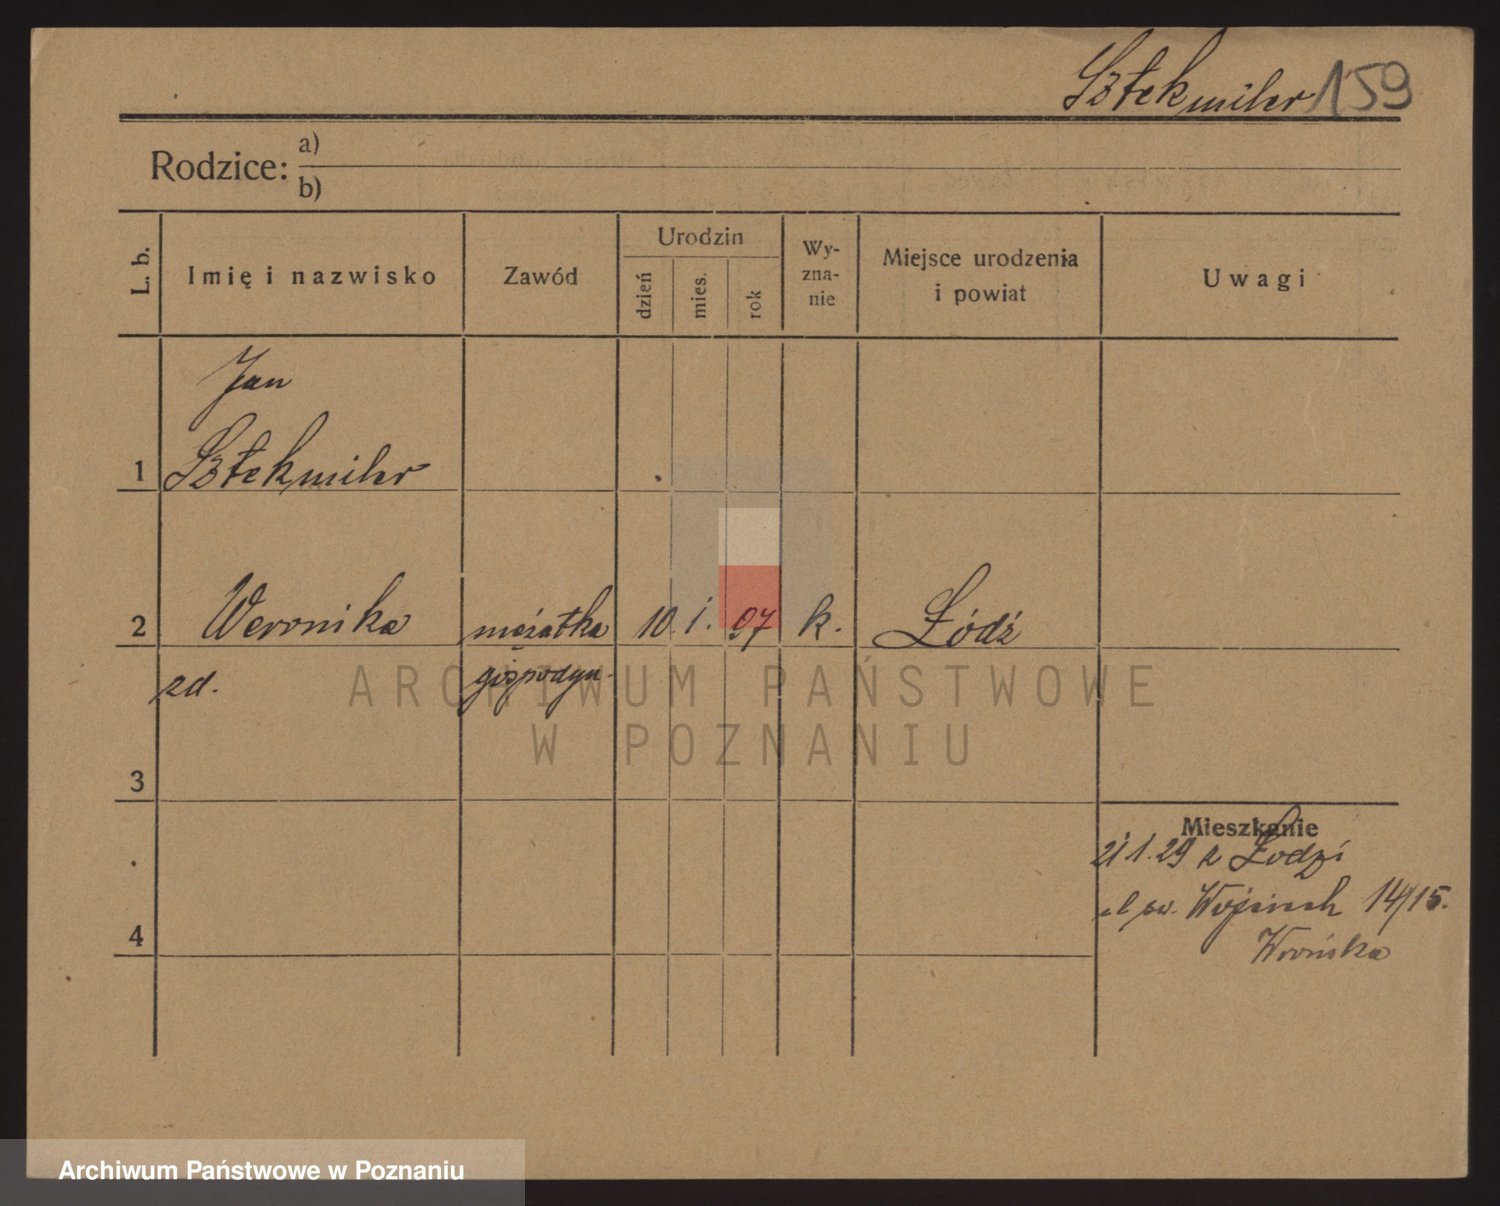 Sztekmiler 159
Rodzice: a)
b)
L. b.
Imię i nazwisko
Zawód
Urodzin
dzień
mies.
rok
Wy-
zna-
nie
Miejsce urodzenia
i powiat
Uwagi
Jan
1 Sztekmiler
2 Weronika mężatka 10. 1. 97 k. Łódź
zd. gospodyn.
ARCHIWUM PAŃSTWOWE
W POZNANIU
3
Mieszkanie
21 1. 29 z Łodzi
św. Wojciech 14/15.
4
Archiwum Państwowe w Poznaniu